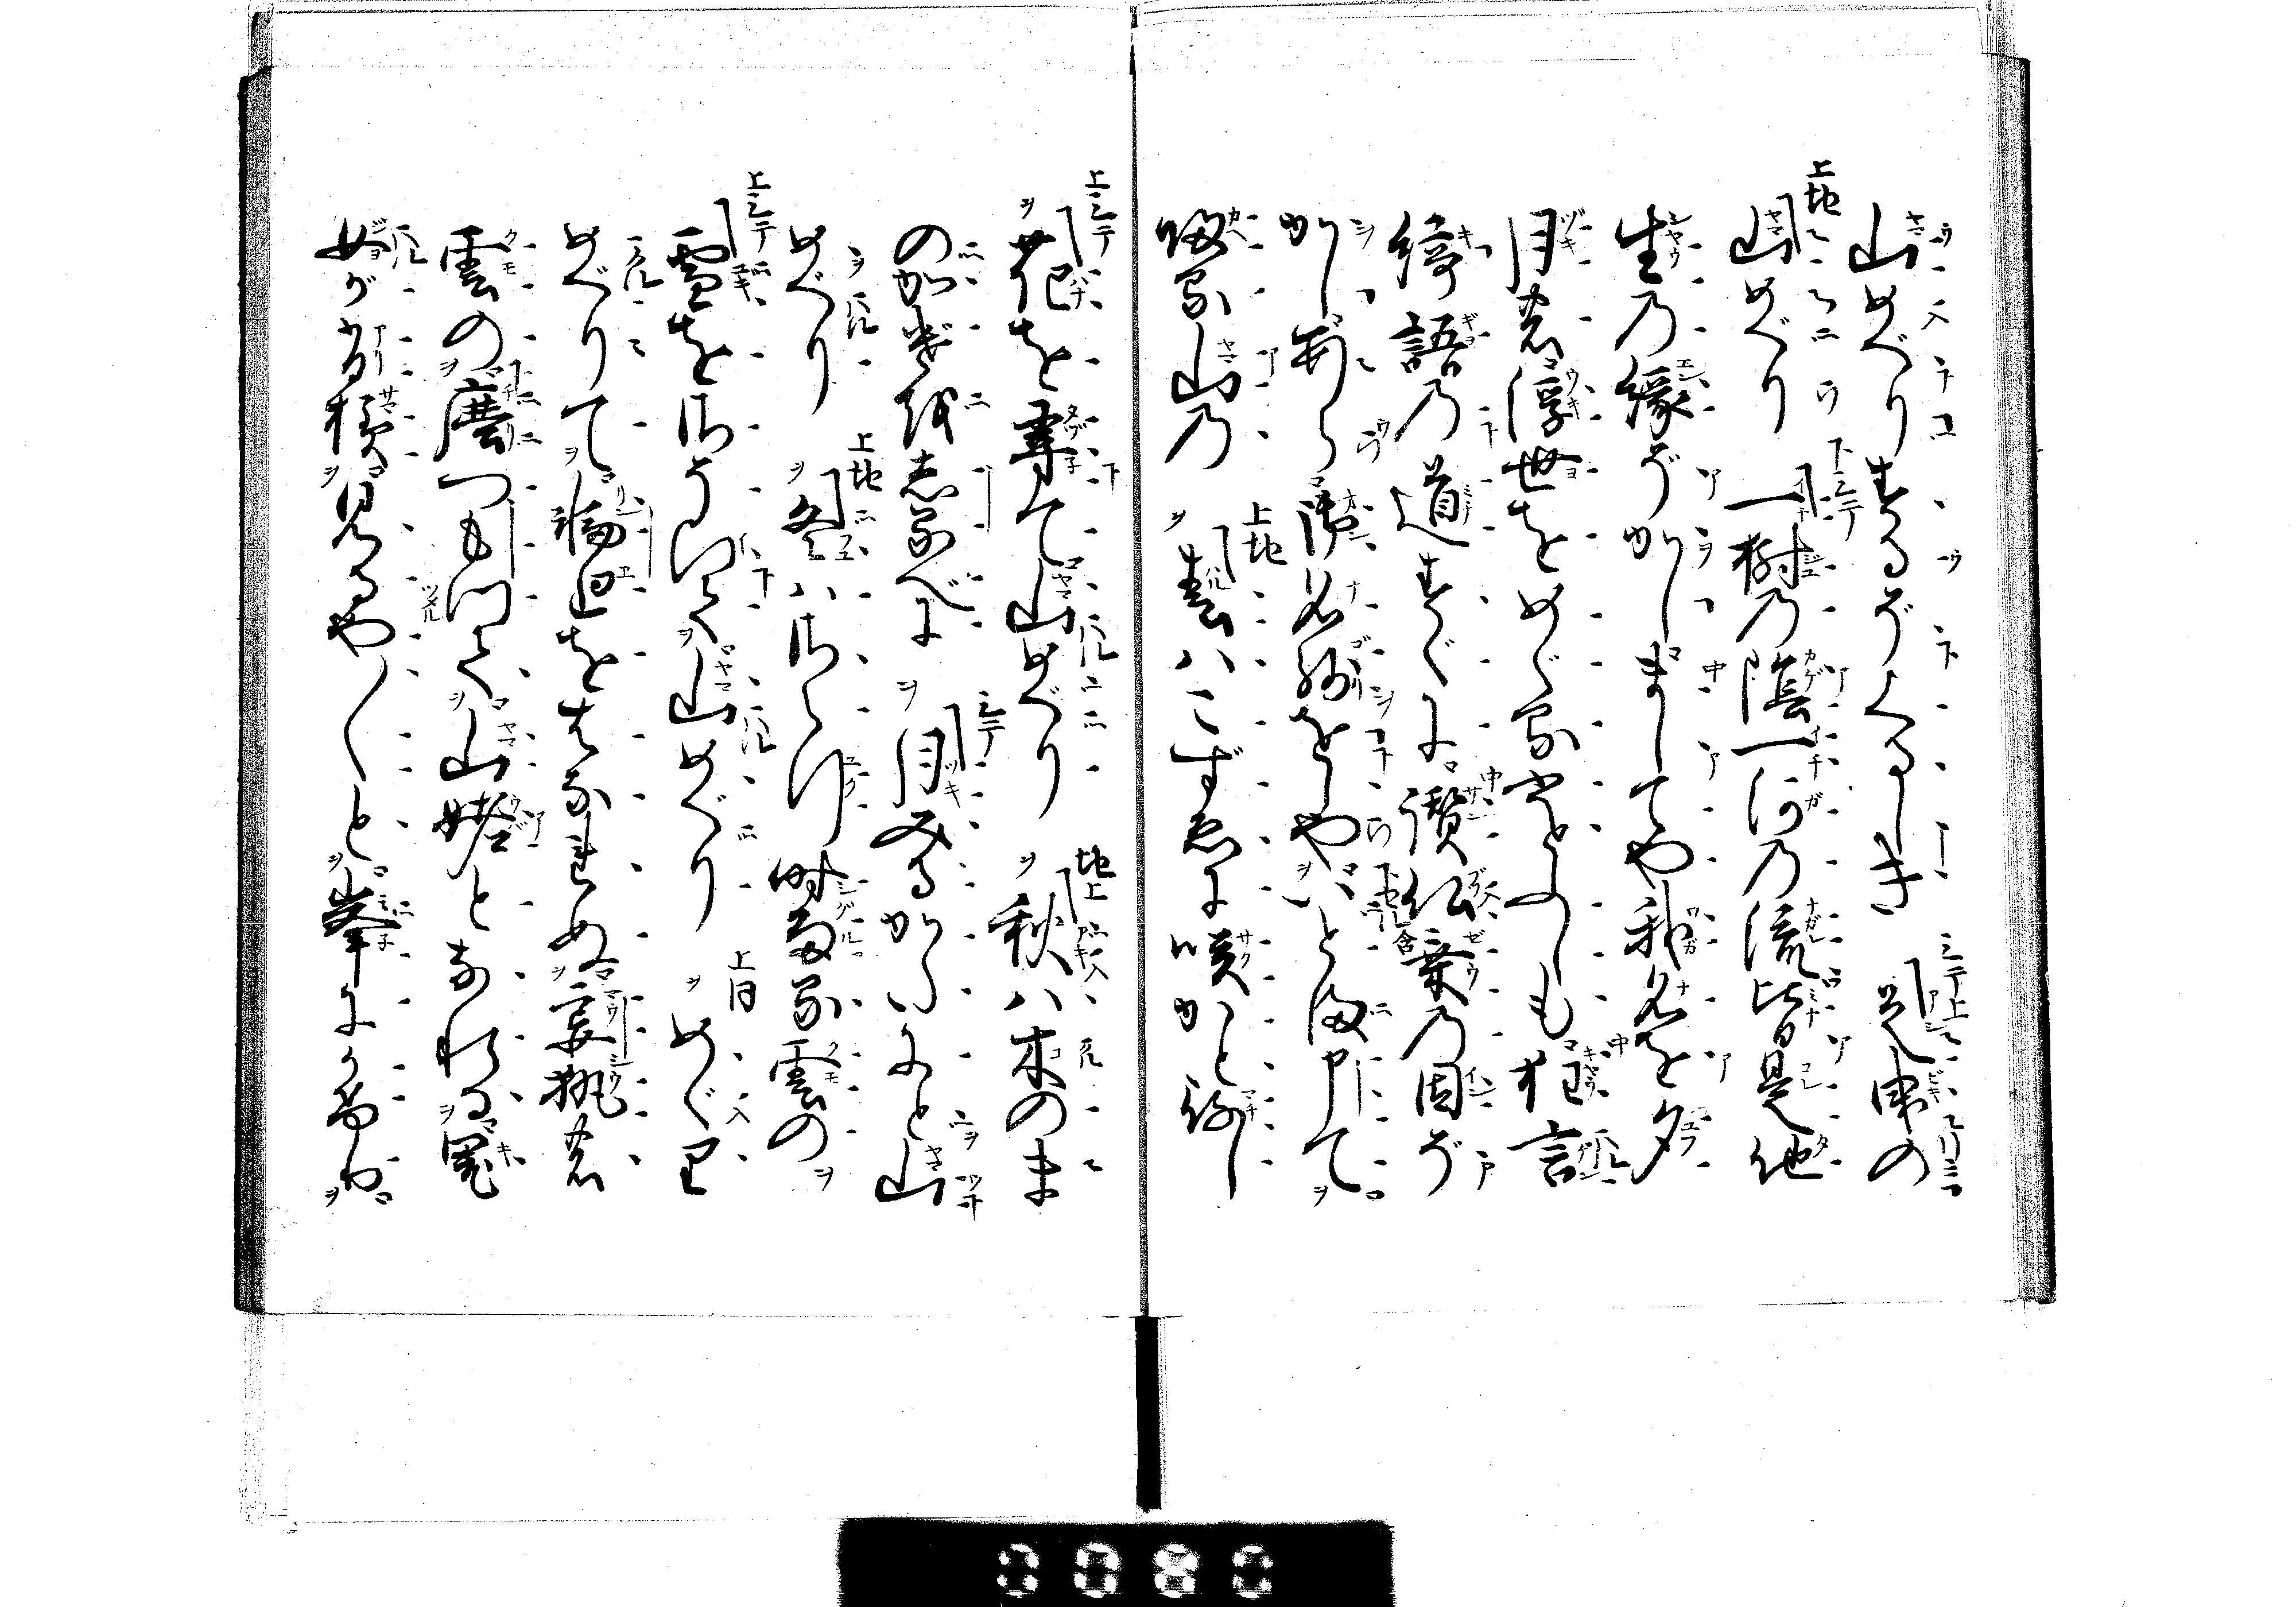 山めぐりするぞくるしき 足引の
山めぐり 一樹の陰一河の流皆是他
生の縁ぞかしましてや我名を夕
月の浮世をめぐる一ふしも狂言
綺語の道すぐに讃仏乗の因ぞ
かしあら御名残をしやいとま申て
帰る山の 春ハこずゑに咲かと待し
花を尋て山めぐり 秋ハさやけき
月みるかたにと山
めぐり 冬ハさえ行時雨る雲の
雪をさそひて山めぐり めぐり
めぐりて輪廻をはなれぬ妄執の
雲の塵つもつて山姥となれる鬼
女が有様見るや〳〵と峯にかけり